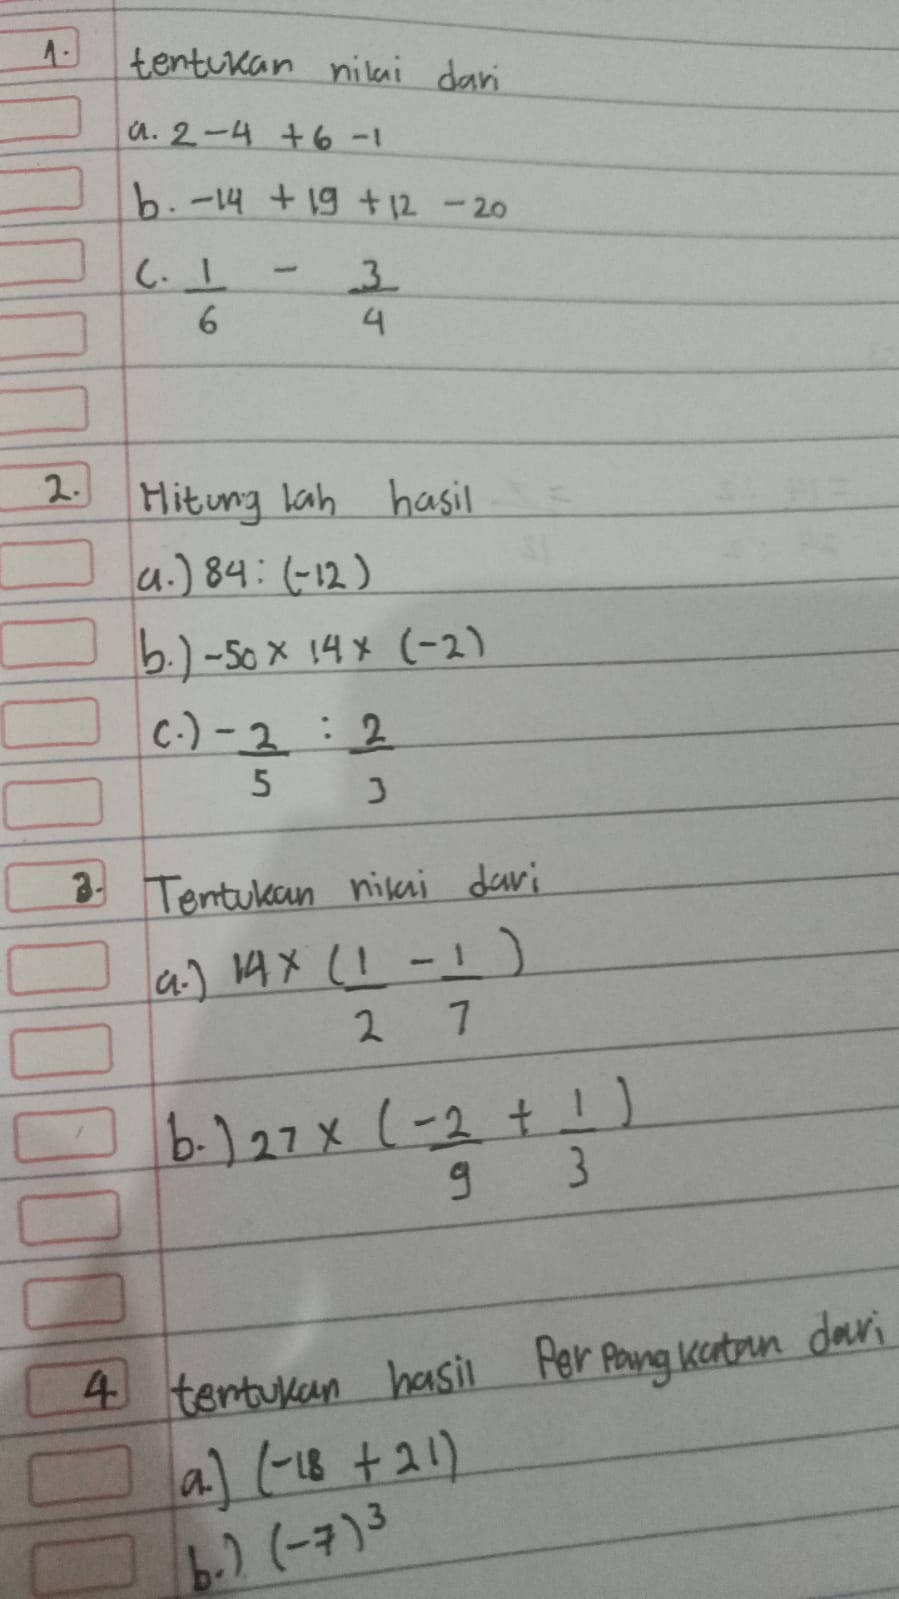 1. tentukan nilai dari
a. 2 - 4 + 6 - 1
b. -14 + 19 + 12 - 20
c. 1/6 - 3/4
2. Hitung lah hasil
a.) 84 : (-12)
b.) -50 x 14 x (-2)
c.) - 2/5 : 2/3
3. Tentukan nilai dari
a.) 14 x (1/2 - 1/7)
b.) 27 x (-2/9 + 1/3)
4. tentukan hasil Perpangkatan dari
a.) (-18 + 21)
b.) (-7)³